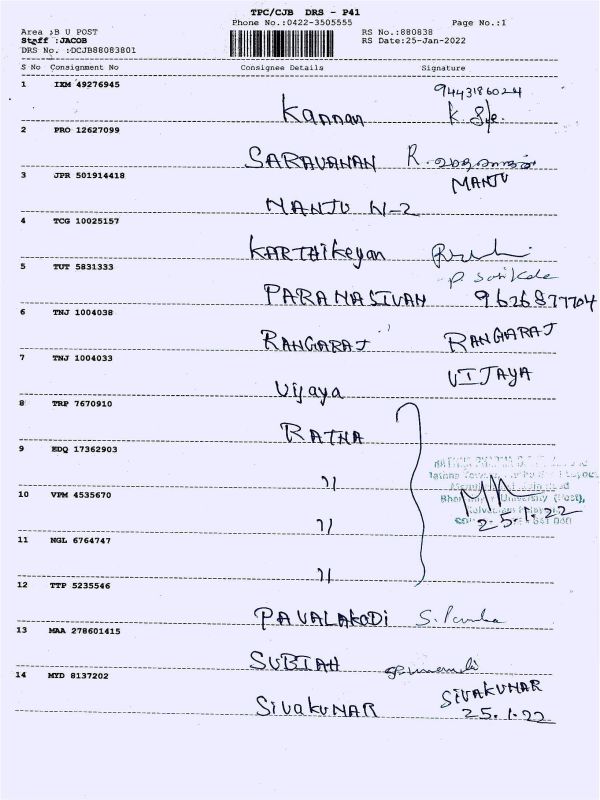 TPC/CJB DRS - P41
Phone No.:0422-3505555 Page No.:1
Area :B U POST RS No.:880838
Staff :JACOB RS Date:25-Jan-2022
DRS No. :DCJB88083801
S No Consignment No Consignee Details Signature
1 IXM 49276945
9443186024
Kannan K
2 PRO 12627099
SARAVANAN R.
3 JPR 501914418 MANJU
MANJU N-2
4 TCG 10025157
KARTHIKeyan
5 TUT 5831333 P
PARAMASIVAN 9626877704
6 TNJ 1004038
RANGARAJ RANGARAJ
7 TNJ 1004033 VIJAYA
Vijaya
8 TRP 7670910
RATNA
9 EDQ 17362903
"
University (Post),
10 VPM 4535670
25.1.22
"
11 NGL 6764747
"
12 TTP 5235546
PAVALAKODI S.
13 MAA 278601415
SUBIAH
14 MYD 8137202
SIVAKUMAR
SivakuMAR 25.1.22